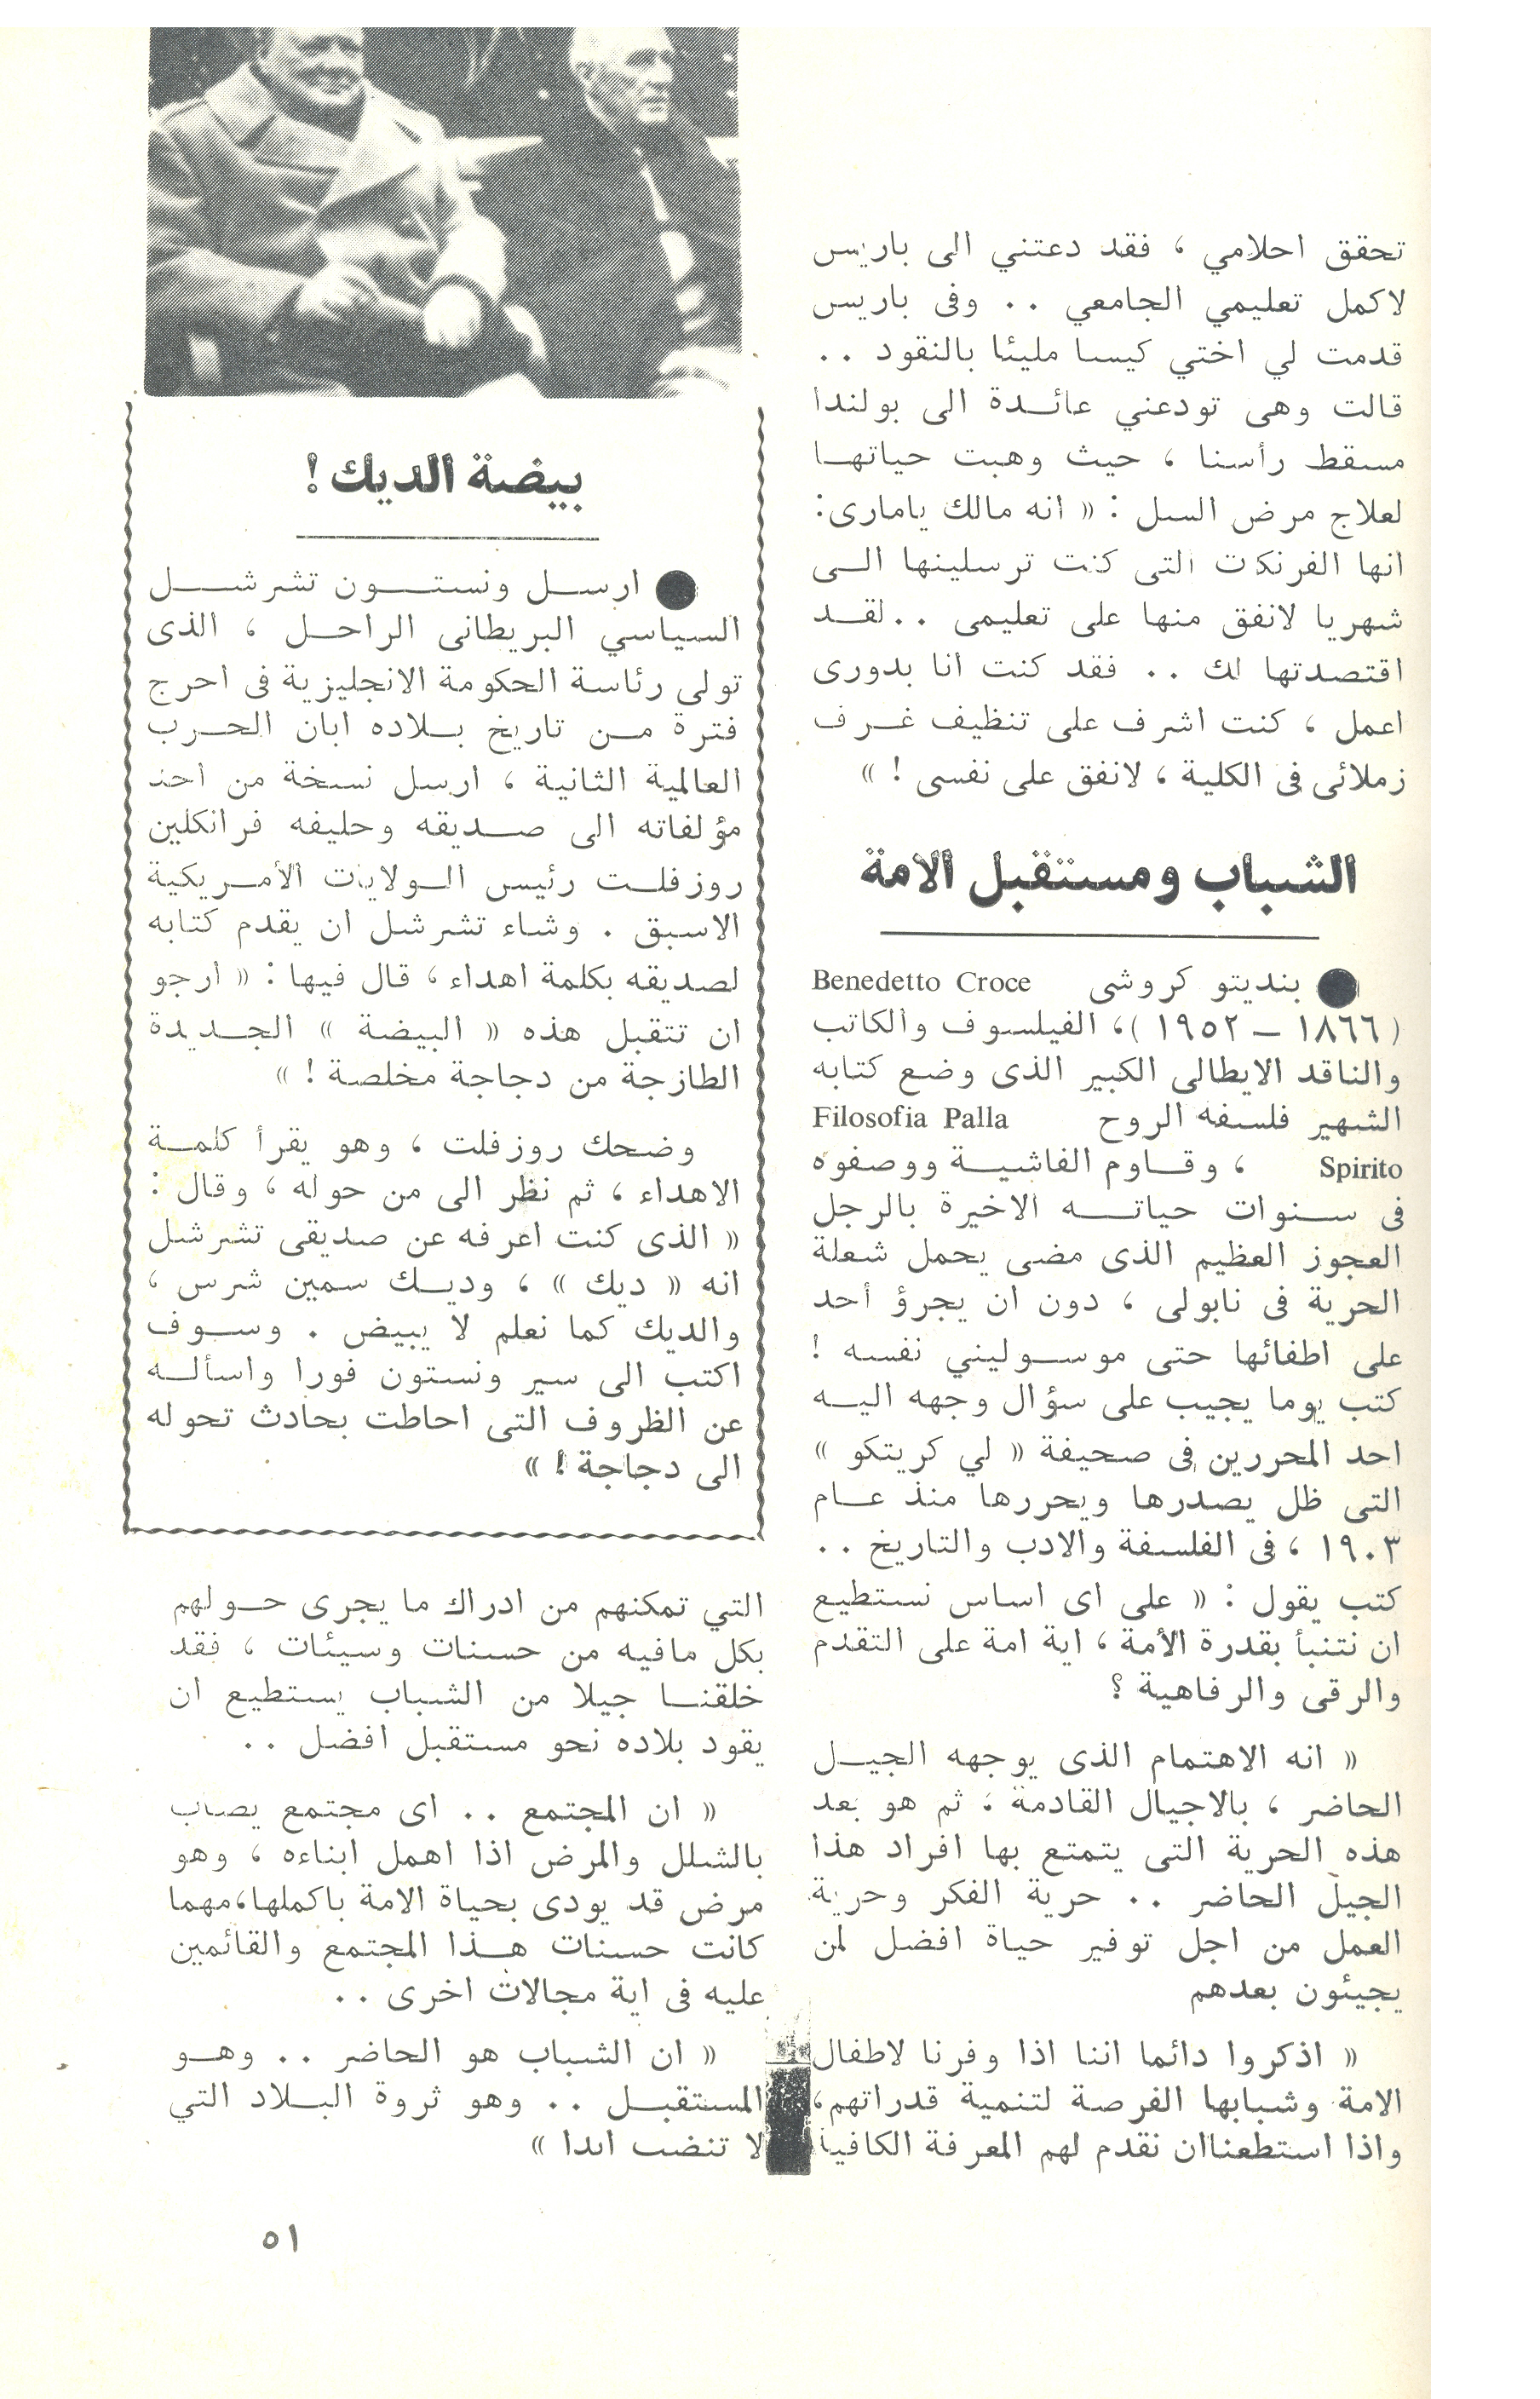 تحقق احلامي ، فقد دعتني الى باريس
لاكمل تعليمي الجامعي .. وفى باريس
قدمت لي اختي كيسا مليئا بالنقود ..
قالت وهى تودعني عائدة الى بولندا
مسقط رأسنا ، حيث وهبت حياتها
لعلاج مرض السل : « انه مالك يامارى:
انها الفرنكات التى كنت ترسلينها الى
شهريا لانفق منها على تعليمى ..لقد
اقتصدتها لك .. فقد كنت أنا بدورى
اعمل ، كنت اشرف على تنظيف غرف
زملائى فى الكلية ، لانفق على نفسى ! »
الشباب ومستقبل الامة
● بنديتو كروشى Benedetto Croce
( ١٨٦٦ – ١٩٥٢ )، الفيلسوف والكاتب
والناقد الايطالى الكبير الذى وضع كتابه
الشهير فلسفه الروح Filosofia Palla
Spirito ، وقاوم الفاشية ووصفوه
فى سنوات حياته الاخيرة بالرجل
العجوز العظيم الذى مضى يحمل شعلة
الحرية فى نابولى ، دون ان يجرؤ أحد
على اطفائها حتى موسوليني نفسه !
كتب يوما يجيب على سؤال وجهه اليه
احد المحررين فى صحيفة « لي كريتكو »
التى ظل يصدرها ويحررها منذ عام
١٩٠٣ ، فى الفلسفة والادب والتاريخ ..
كتب يقول : « على اى اساس نستطيع
ان نتنبأ بقدرة الأمة ، اية امة على التقدم
والرقى والرفاهية ؟
« انه الاهتمام الذى يوجهه الجيل
الحاضر ، بالاجيال القادمة ، ثم هو بعد
هذه الحرية التى يتمتع بها افراد هذا
الجيل الحاضر .. حرية الفكر وحرية
العمل من اجل توفير حياة افضل لمن
يجيئون بعدهم
« اذكروا دائما اننا اذا وفرنا لاطفال
الامة وشبابها الفرصة لتنمية قدراتهم،
واذا استطعناان نقدم لهم المعرفة الكافية
بيضة الديك !
● ارسل ونستون تشرشل
السياسي البريطانى الراحل ، الذى
تولى رئاسة الحكومة الانجليزية فى احرج
فترة من تاريخ بلاده ابان الحرب
العالمية الثانية ، ارسل نسخة من احد
مؤلفاته الى صديقه وحليفه فرانكلين
روزفلت رئيس الولايات الأمريكية
الاسبق . وشاء تشرشل ان يقدم كتابه
لصديقه بكلمة اهداء ، قال فيها : « ارجو
ان تتقبل هذه « البيضة » الجديدة
الطازجة من دجاجة مخلصة ! »
وضحك روزفلت ، وهو يقرأ كلمة
الاهداء ، ثم نظر الى من حوله ، وقال :
« الذى كنت اعرفه عن صديقى تشرشل
انه « ديك » ، وديك سمين شرس ،
والديك كما نعلم لا يبيض . وسوف
اكتب الى سير ونستون فورا واسأله
عن الظروف التى احاطت بحادث تحوله
الى دجاجة ! »
التي تمكنهم من ادراك ما يجرى حولهم
بكل مافيه من حسنات وسيئات ، فقد
خلقنا جيلا من الشباب يستطيع ان
يقود بلاده نحو مستقبل افضل ..
« ان المجتمع .. اى مجتمع يصاب
بالشلل والمرض اذا اهمل ابناءه ، وهو
مرض قد يودى بحياة الامة باكملها،مهما
كانت حسنات هذا المجتمع والقائمين
عليه فى اية مجالات اخرى ..
« ان الشباب هو الحاضر .. وهو
المستقبل .. وهو ثروة البلاد التي
لا تنضب ابدا »
٥١